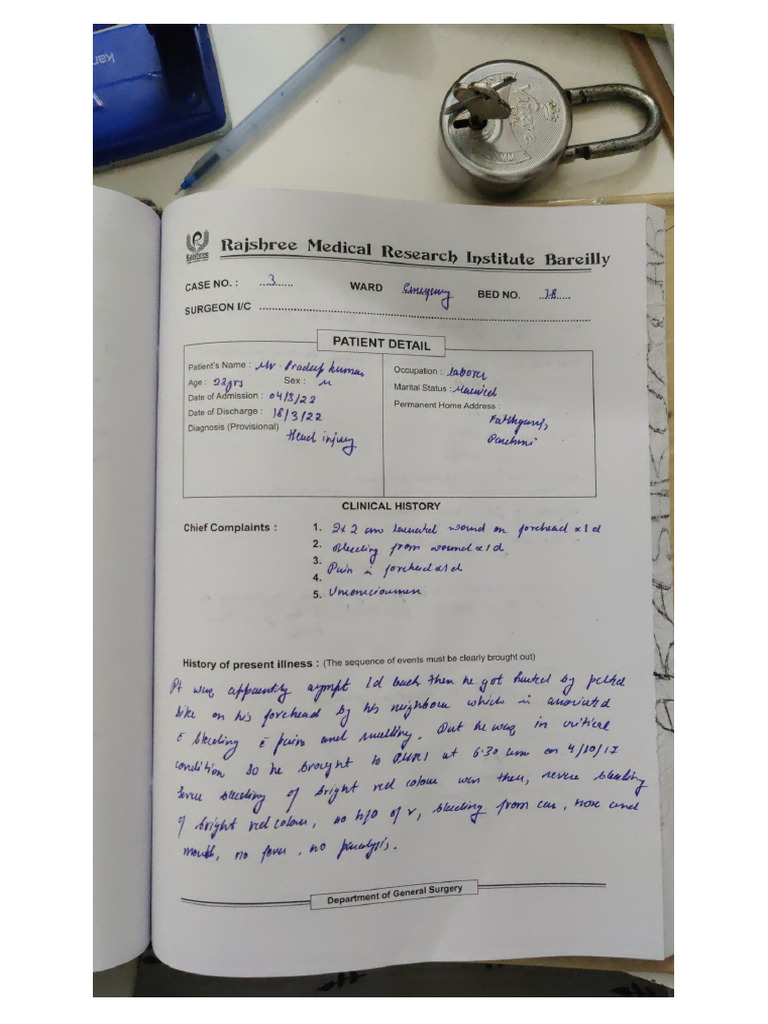 Rajshree
Rajshree Medical Research Institute Bareilly
CASE NO. : 3 WARD Emergency BED NO. 18
SURGEON I/C
PATIENT DETAIL
Patient's Name : Mr. Pradeep kumar
Age : 23yrs Sex : M
Date of Admission : 04/3/22
Date of Discharge : 18/3/22
Diagnosis (Provisional) Head injury
Occupation : laborer
Marital Status : Married
Permanent Home Address :
CLINICAL HISTORY
Chief Complaints :
1. 2x2 cm lacerated wound on forehead x1d
2. Bleeding from wound x1d
3.
4. Pain in forehead x1d
5. Unconsciousness
History of present illness : (The sequence of events must be clearly brought out)
Pt was apparently asympt 1d back then he got by
bike on his forehead by his neighbour which is associated
c bleeding c pain and swelling. But he was in critical
condition so he brought to at 6:30 on 4/10/17
severe bleeding of bright red colour was there, severe bleeding
of bright red colour, no h/o of v, bleeding from ear, nose and
mouth, no fever, no paralysis.
Department of General Surgery